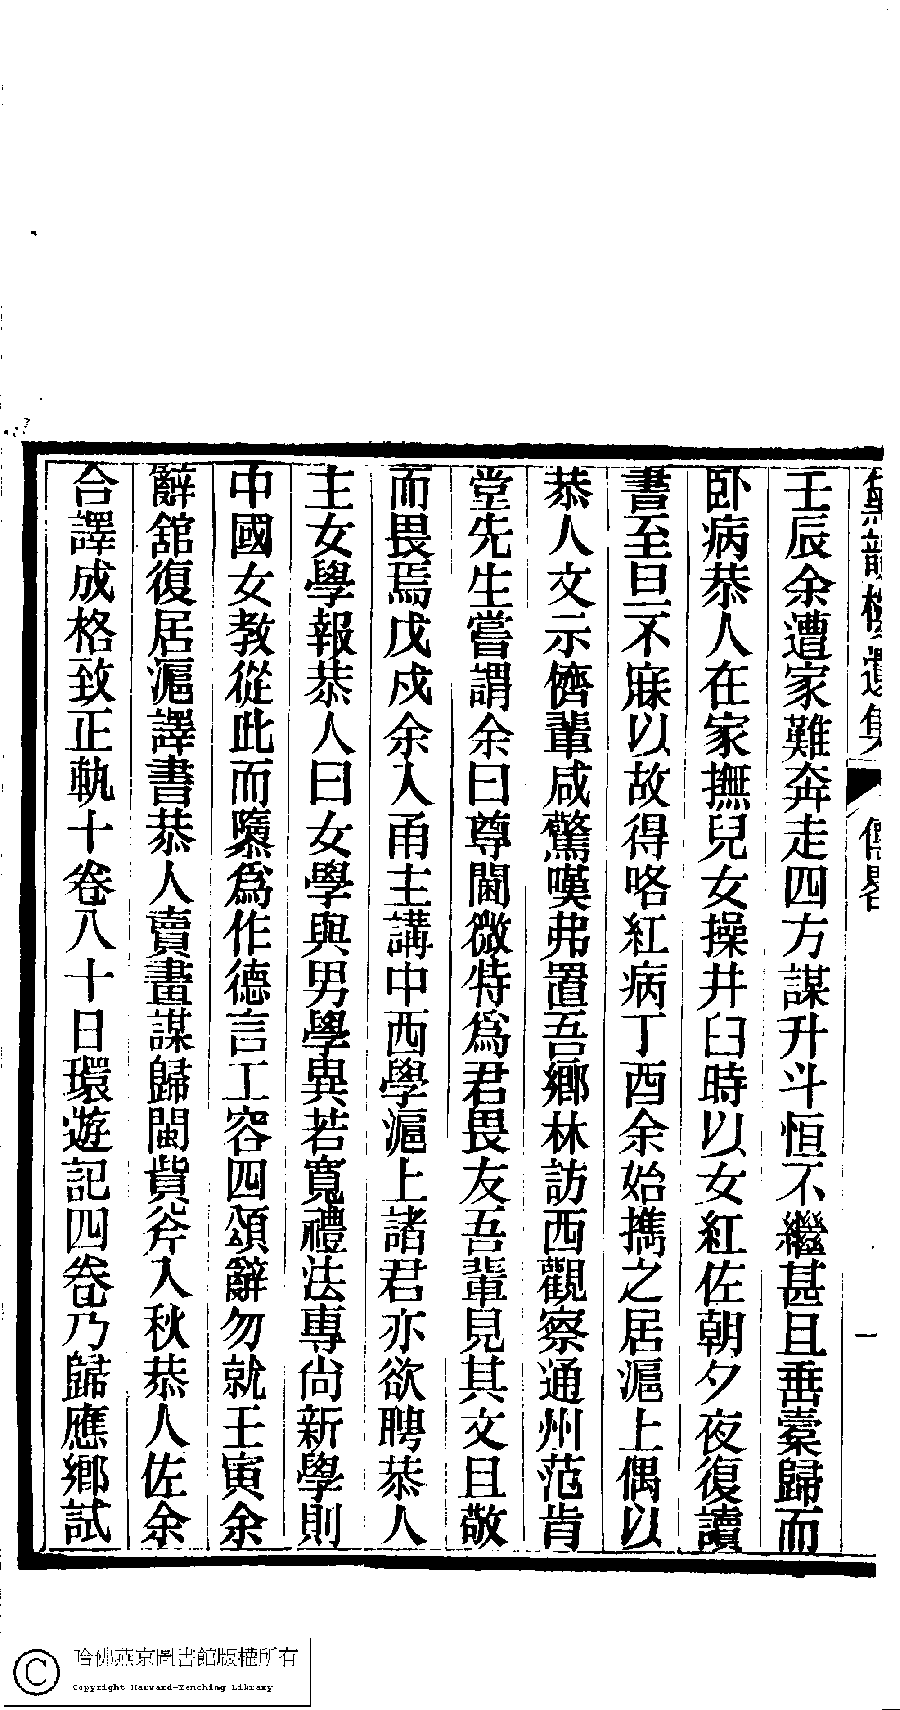 黛韻樓遺集 傳畧 一
壬辰余遭家難奔走四方謀升斗恒不繼甚且垂橐歸而
卧病恭人在家撫兒女操井臼時以女紅佐朝夕夜復讀
書至旦不寐以故得咯紅病丁酉余始攜之居滬上偶以
恭人文示儕輩咸驚嘆弗置吾鄉林訪西觀察通州范肯
堂先生嘗謂余曰尊閫微特爲君畏友吾輩見其文且敬
而畏焉戊戌余入甬主講中西學滬上諸君亦欲聘恭人
主女學報恭人曰女學與男學異若寬禮法專尚新學則
中國女教從此而隳爲作德言工容四頌辭勿就壬寅余
辭舘復居滬譯書恭人賣畫謀歸閩貲斧入秋恭人佐余
合譯成格致正軌十卷八十日環遊記四卷乃歸應鄉試
哈佛燕京圖書館版權所有
Copyright Harvard-Yenching Library